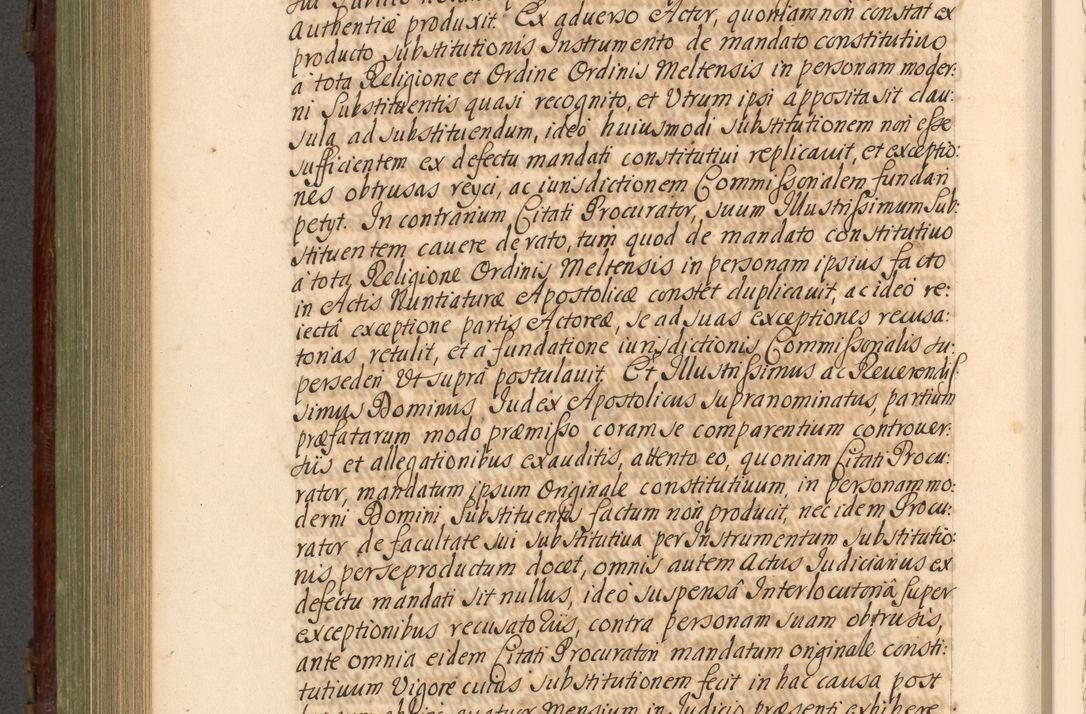 Authentiæ produxit. Ex adverso Actor, quoniam non constat ex
producto Substitutionis Instrumento de mandato constitutivo
a tota Religione et Ordine Ordinis Meltensis in personam moder:
ni Substituentis quasi recognito, et Utrum ipsi apposita sit clau:
sula ad substituendum, ideo huiusmodi substitutionem non esse
sufficientem ex defectu mandati constitutivi replicauit, et exceptio:
nes obtrusas reyci, ac iurisdictionem Commissorialem fundari
petyt. In contrarium Citati Procurator, suum Illustrissimum Sub:
stituentem cauere de rato, tum quod de mandato constitutiuo
a tota Religione Ordinis Meltensis in personam ipsius facto
in Actis Nuntiaturæ Apostolicæ constet duplicauit, ac ideo re:
iectâ exceptione partis Actoreæ, se ad suas exceptiones recusa:
torias retulit, et a fundatione iurisdictionis Commissorialis su:
persederi Ut supra postulauit. Et Illustrissimus ac Reuerendis:
simus Dominus Iudex Apostolicus supranominatus, partium
præfatarum modo præmisso coram se comparentium controuer:
siis et allegationibus exauditis, attento eo, quoniam Citati Procu:
rator, mandatum ipsum Originale constitutiuum, in personam mo:
derni Domini Substituentis factum non producit, nec idem Procu:
rator de facultate sui substitutiua per Instrumentum substitutio:
nis per se productum docet, omnis autem Actus Iudiciarius ex
defectu mandati sit nullus, ideo suspensâ Interlocutoriâ super
exceptionibus recusatoriis, contra personam suam obtrusis,
ante omnia eidem Citati Procuratori mandatum originale consti:
tutiuum Vigore cuius substitutionem fecit in hac causa post
quatuor Mensium in Iudicio præsenti exhibere